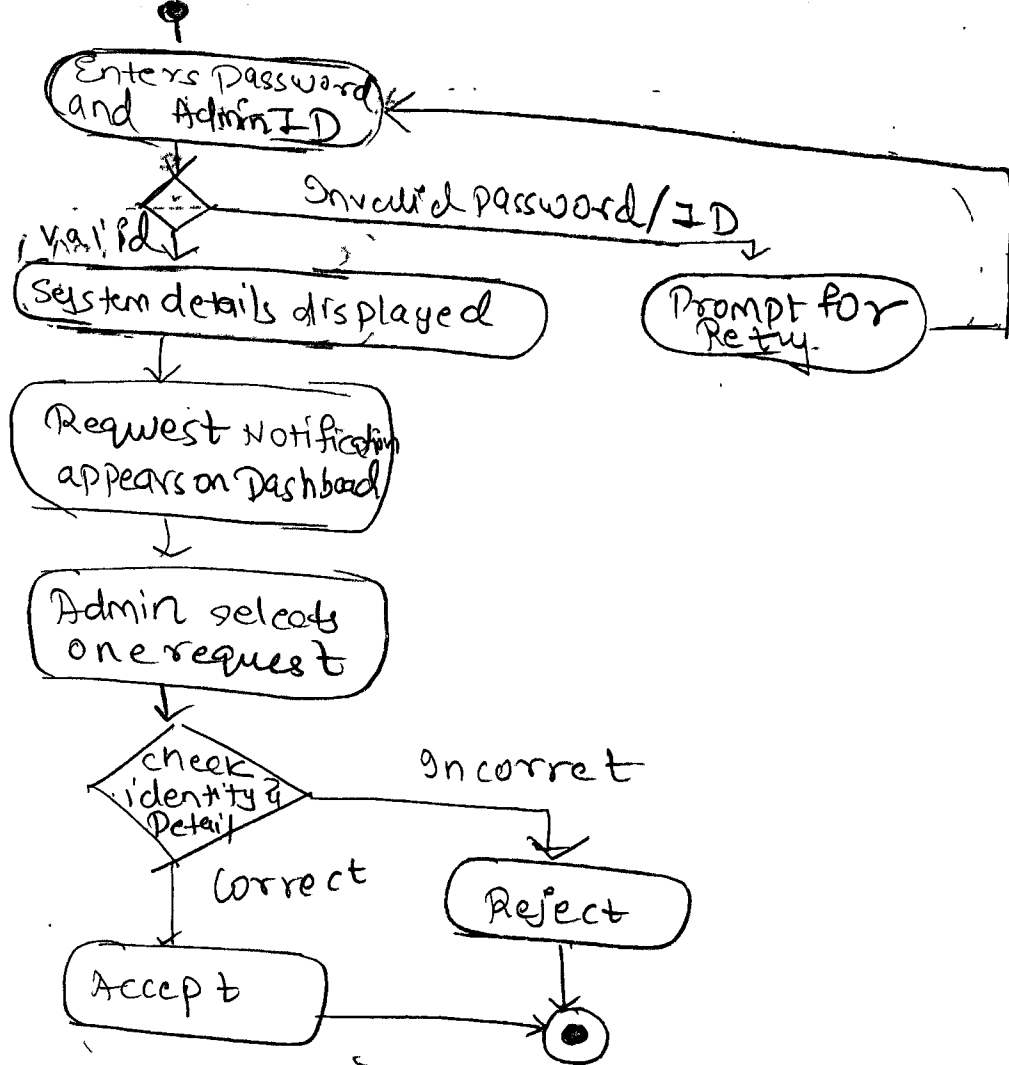 Enters Password
and Admin ID
Invalid Password/ID
valid
System details displayed
Prompt for
Retry.
Request Notification
appears on Dashboad
Admin selects
one request
check
identity &
Detail
Incorret
Correct
Reject
Accept